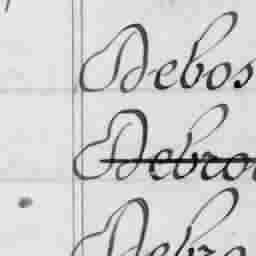 Debos
Debro
Debro